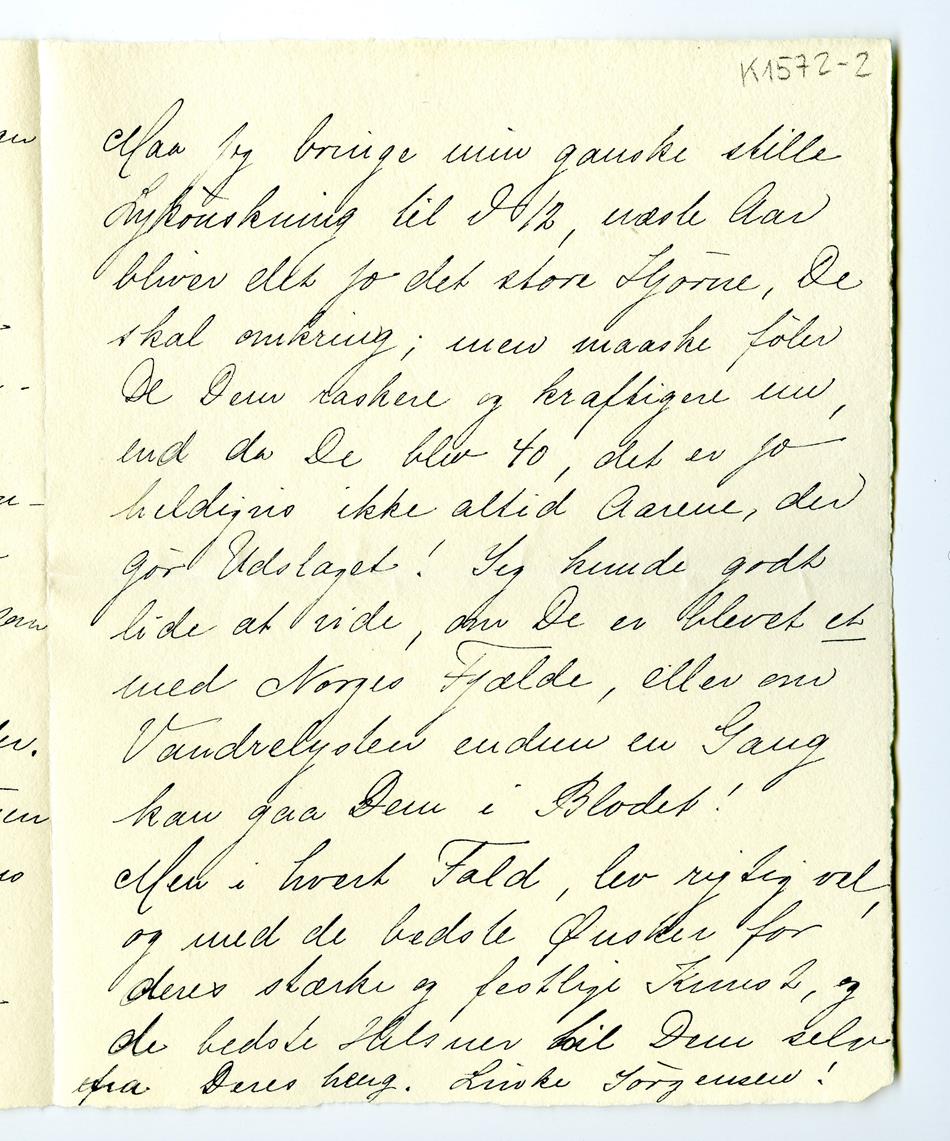 K1572-2
Maa jeg bringe min ganske stille
Lykønskning til d 12/12, næste Aar
bliver det jo det store Hjørne, De
skal omkring; men maaske føler
De Dem raskere og kraftigere nu,
end da De blev 40, det er jo
heldigvis ikke altid Aarene, der
gør Udslaget! Jeg kunde godt
lide at vide, om De er blevet et
med Norges Fjælde, eller om
Vandrelysten endnu en Gang
kan gaa Dem i Blodet!
Men i hvert Fald, lev rigtig vel,
og med de bedste Ønsker for
deres stærke og festlige Kunst, og
de bedste Hilsner til Dem selv
fra Deres heng. Linke Jørgensen!